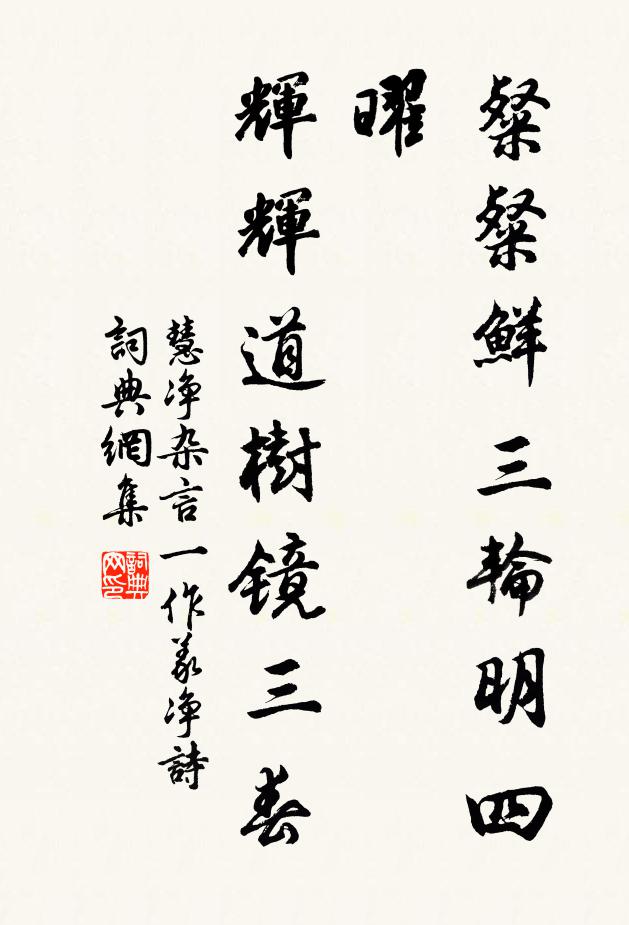 粲粲鮮三輪明四
曜
輝輝道樹鏡三春
慧净杂言一作義净詩
詞典網集
詞典
网印